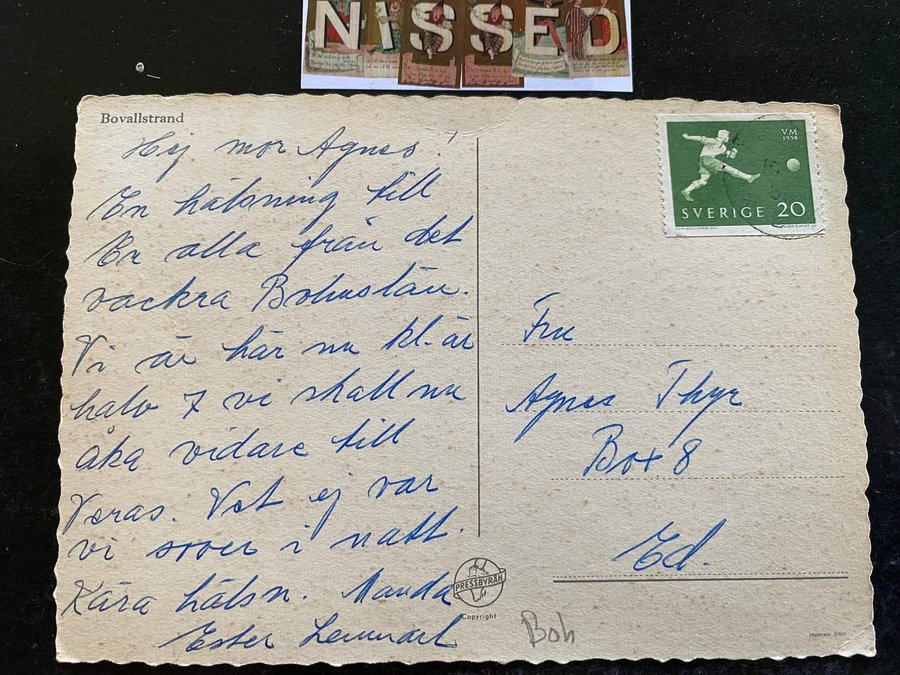 NISSED
Bovallstrand
Hej mor Agnes!
En hälsning till
Er alla från det
vackra Bohuslän.
Vi är här nu kl. är
halv 7 vi skall nu
åka vidare till
Veras. Vet ej var
vi sover i natt.
Kära hälsn. Manda
Ester Lennart
VM
1958
SVERIGE 20
Fru
Agnes Thyr
Box 8
Ed.
PRESSBYRÅN
Copyright
Boh